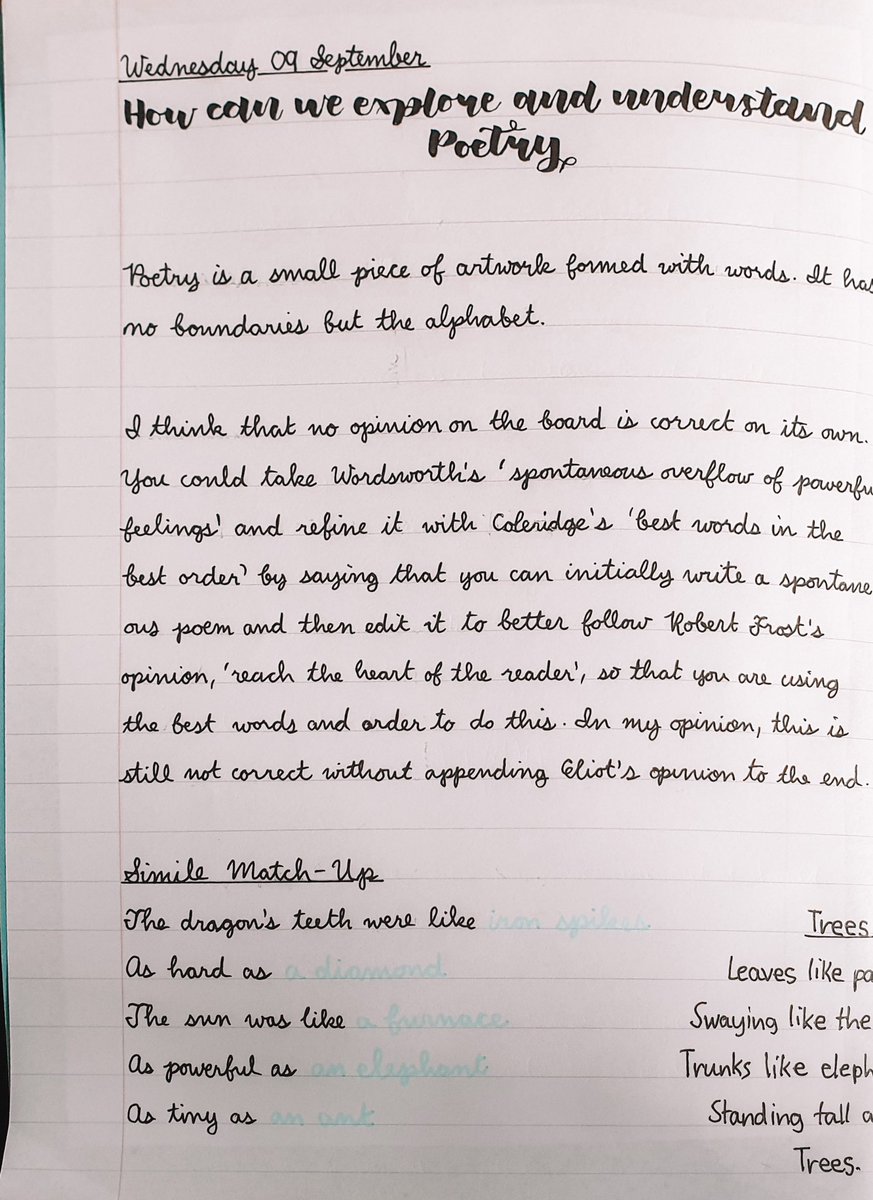 Wednesday 09 September
How can we explore and understand
Poetry
Poetry is a small piece of artwork formed with words. It has
no boundaries but the alphabet.
I think that no opinion on the board is correct on its own.
You could take Wordsworth's 'spontaneous overflow of powerfu
feelings' and refine it with Coleridge's 'best words in the
best order' by saying that you can initially write a spontane
ous poem and then edit it to better follow Robert Frost's
opinion, 'reach the heart of the reader', so that you are using
the best words and order to do this. In my opinion, this is
still not correct without appending Eliot's opinion to the end.
Simile Match-Up
The dragon's teeth were like iron spikes
As hard as a diamond
The sun was like a furnace
As powerful as an elephant
As tiny as an ant
Trees
Leaves like pa
Swaying like the
Trunks like eleph
Standing tall a
Trees.